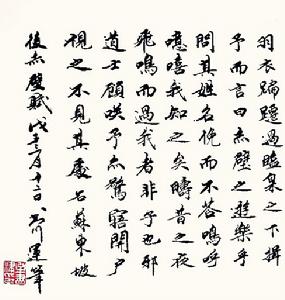 羽衣蹁躚過臨皋之下揖
予而言曰赤壁之遊樂乎
問其姓名俛而不答嗚呼
噫嘻我知之矣疇昔之夜
飛鳴而過我者非子也邪
道士顧笑予亦驚寤開戶
視之不見其處右蘇東坡
後赤壁賦戊子二月十二日